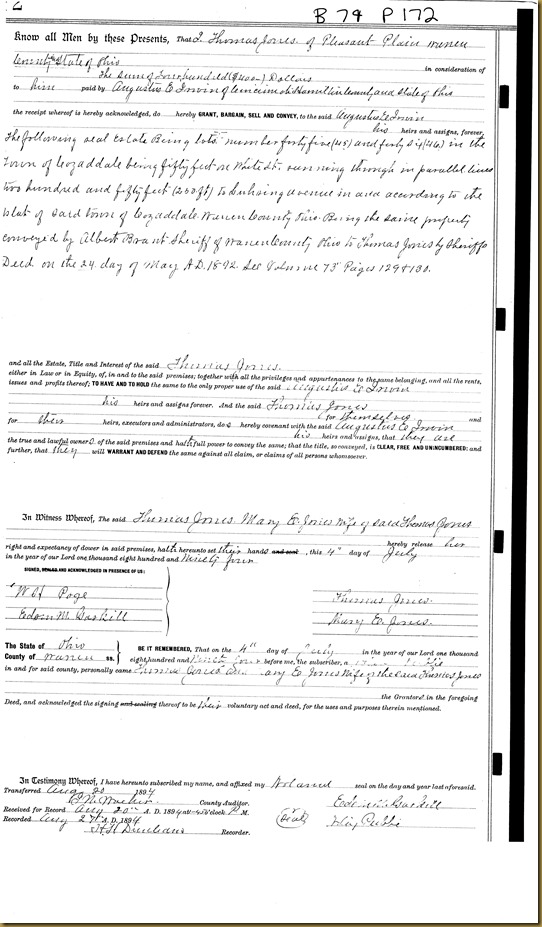 B 79 P 172
Know all Men by these Presents, That I Thomas Jones of Pleasant Plain Warren
County State of Ohio in consideration of
The sum of Four hundred ($400) Dollars
to him paid by Augustus E Irwin of Cincinnati Hamilton County and State of Ohio
the receipt whereof is hereby acknowledged, do hereby GRANT, BARGAIN, SELL AND CONVEY, to the said Augustus E Irwin
his heirs and assigns, forever,
The following real Estate Being lots number forty five (45) and forty six (46) in the
Town of Cozaddale being fifty feet on White st. running through in parallel lines
two hundred and fifty feet (250 ft) to avenue in area according to the
plat of said town of Cozaddale Warren County Ohio. Being the same property
conveyed by Albert Brant Sheriff of Warren County Ohio to Thomas Jones by Sheriffs
Deed on the 24 day of May A.D. 1892. See Volume 73 Pages 129 & 130.
and all the Estate, Title and Interest of the said Thomas Jones.
either in Law or in Equity, of, in and to the said premises; together with all the privileges and appurtenances to the same belonging, and all the rents,
issues and profits thereof; TO HAVE AND TO HOLD the same to the only proper use of the said Augustus E Irwin
his heirs and assigns forever. And the said Thomas Jones
for themselves and
for their heirs, executors and administrators, does hereby covenant with the said Augustus E Irwin
his heirs and assigns, that they are
the true and lawful owners of the said premises and hath full power to convey the same; that the title, so conveyed, is CLEAR, FREE AND UNINCUMBERED; and
further, that they will WARRANT AND DEFEND the same against all claim, or claims of all persons whomsoever.
In Witness Whereof, The said Thomas Jones Mary E. Jones wife of said Thomas Jones
hereby release her
right and expectancy of dower in said premises, hath hereunto set their hands and seal, this 4th day of July
in the year of our Lord one thousand eight hundred and Ninety four
SIGNED, SEALED AND ACKNOWLEDGED IN PRESENCE OF US:
W H Page
Thomas Jones.
Edwin M. Gaskill
Mary E. Jones.
The State of Ohio
County of Warren ss.
BE IT REMEMBERED, That on the 4th day of July in the year of our Lord one thousand
eight hundred and Ninety four before me, the subscriber, a
in and for said county, personally came Thomas Jones and Mary E Jones wife of the said Thomas Jones
the Grantors in the foregoing
Deed, and acknowledged the signing and sealing thereof to be their voluntary act and deed, for the uses and purposes therein mentioned.
In Testimony Whereof, I have hereunto subscribed my name, and affixed my Notarial seal on the day and year last aforesaid.
Transferred Aug 20 1894
County Auditor.
Edwin M Gaskill
Received for Record Aug 20th A. D. 1894 at o'clock P M.
(Seal)
Notary Public
Recorded Aug 27th A. D. 1894
Recorder.